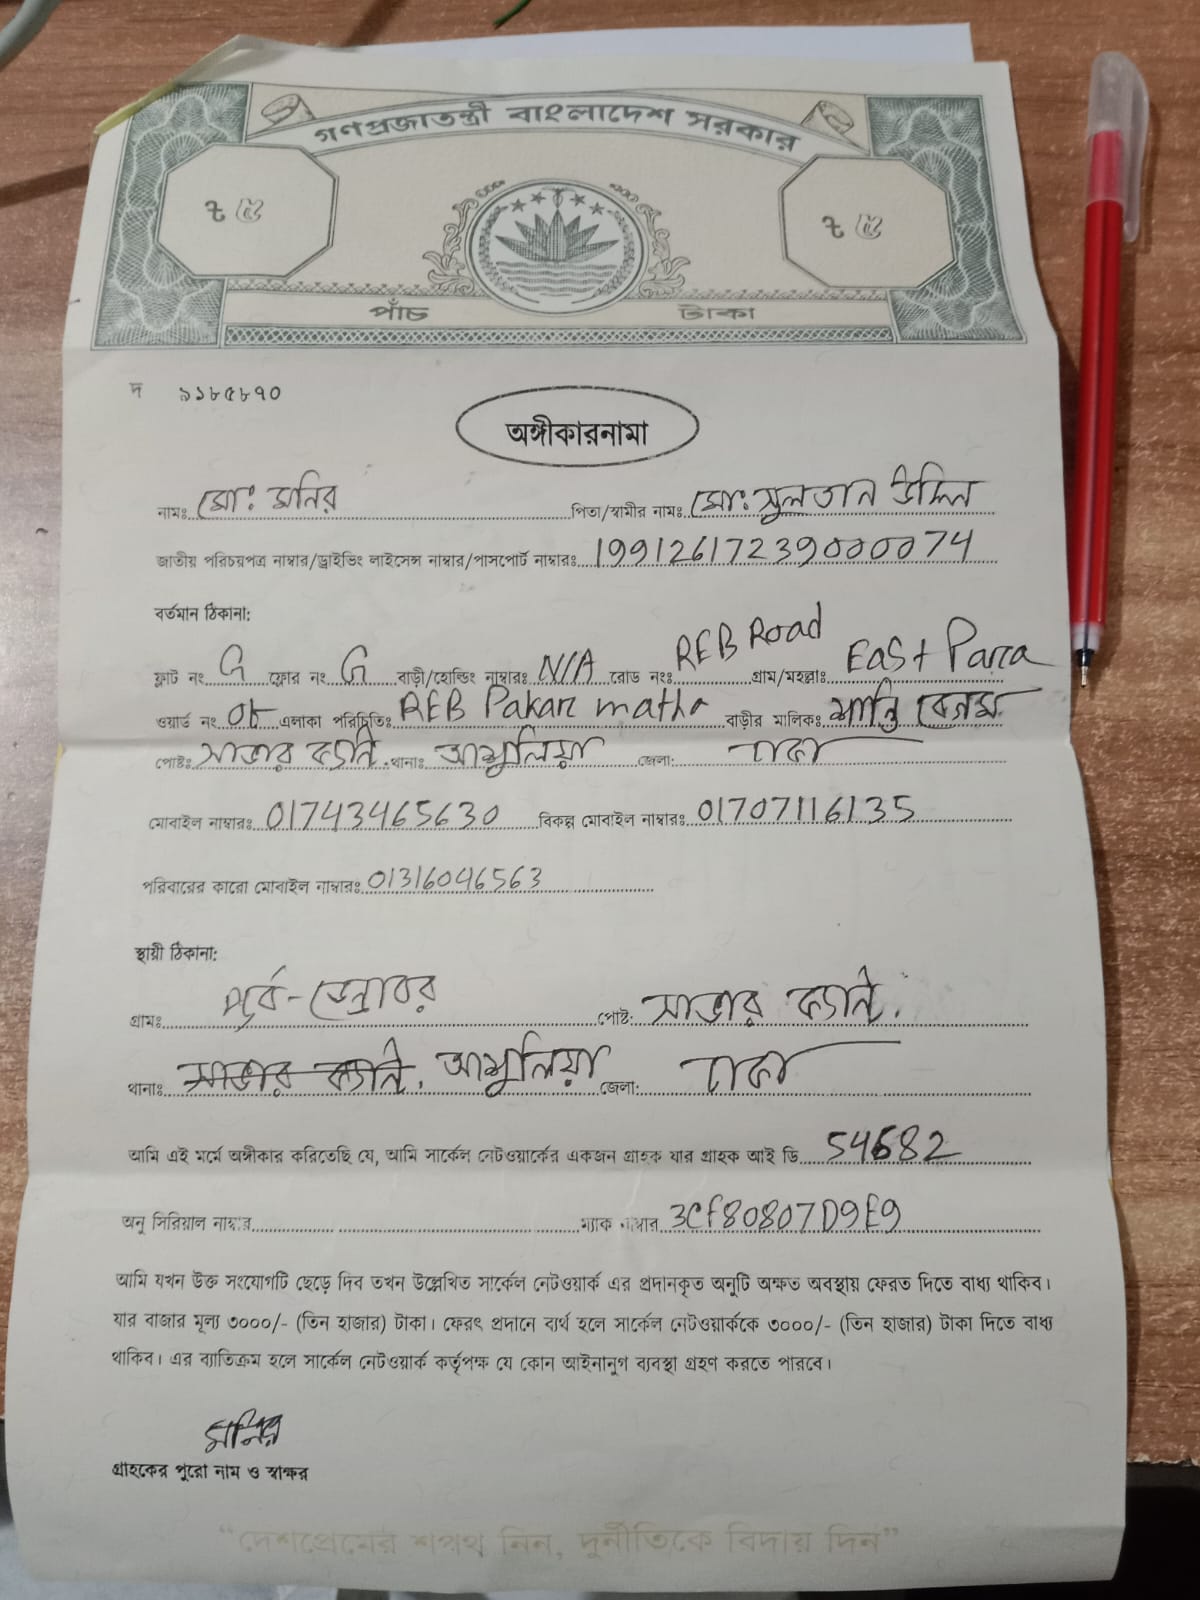 গণপ্রজাতন্ত্রী বাংলাদেশ সরকার
৳ ৫ ৳ ৫
পাঁচ টাকা
দ ৯১৮৫৮৭০
অঙ্গীকারনামা
নামঃ মোঃ মনির পিতা/স্বামীর নামঃ মোঃ সুলতান উদ্দিন
জাতীয় পরিচয়পত্র নাম্বার/ড্রাইভিং লাইসেন্স নাম্বার/পাসপোর্ট নাম্বারঃ 19912617239000074
বর্তমান ঠিকানা:
ফ্লাট নং G ফ্লোর নং G বাড়ী/হোল্ডিং নাম্বারঃ N/A রোড নংঃ REB Road গ্রাম/মহল্লাঃ East Para
ওয়ার্ড নং ০৮ এলাকা পরিচিতিঃ REB Pakar matha বাড়ীর মালিকঃ শান্তি বেগম
পোষ্টঃ সাভার ক্যান্ট. থানাঃ আশুলিয়া জেলা: ঢাকা
মোবাইল নাম্বারঃ 01743465630 বিকল্প মোবাইল নাম্বারঃ 01707116135
পরিবারের কারো মোবাইল নাম্বারঃ 01316046563
স্থায়ী ঠিকানা:
গ্রামঃ পূর্ব-ডেন্ডাবর পোষ্ট: সাভার ক্যান্ট.
থানাঃ সাভার ক্যান্ট. আশুলিয়া জেলা: ঢাকা
আমি এই মর্মে অঙ্গীকার করিতেছি যে, আমি সার্কেল নেটওয়ার্কের একজন গ্রাহক যার গ্রাহক আই ডি 54682
অনু সিরিয়াল নাম্বার ম্যাক নাম্বার 3CF80807D9E9
আমি যখন উক্ত সংযোগটি ছেড়ে দিব তখন উল্লেখিত সার্কেল নেটওয়ার্ক এর প্রদানকৃত অনুটি অক্ষত অবস্থায় ফেরত দিতে বাধ্য থাকিব।
যার বাজার মূল্য ৩০০০/- (তিন হাজার) টাকা। ফেরৎ প্রদানে ব্যর্থ হলে সার্কেল নেটওয়ার্ককে ৩০০০/- (তিন হাজার) টাকা দিতে বাধ্য
থাকিব। এর ব্যাতিক্রম হলে সার্কেল নেটওয়ার্ক কর্তৃপক্ষ যে কোন আইনানুগ ব্যবস্থা গ্রহণ করতে পারবে।
মনির
গ্রাহকের পুরো নাম ও স্বাক্ষর
“দেশপ্রেমের শপথ নিন, দুর্নীতিকে বিদায় দিন”